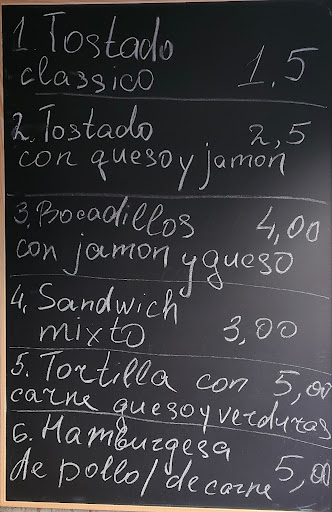 1. Tostado
classico 1.5
2. Tostado 2,5
con queso y jamon
3. Bocadillos 4,00
con jamon y queso
4. Sandwich
mixto 3,00
5. Tortilla con 5,00
carne queso y verduras
6. Hamburgesa
de pollo/de carne 5,00